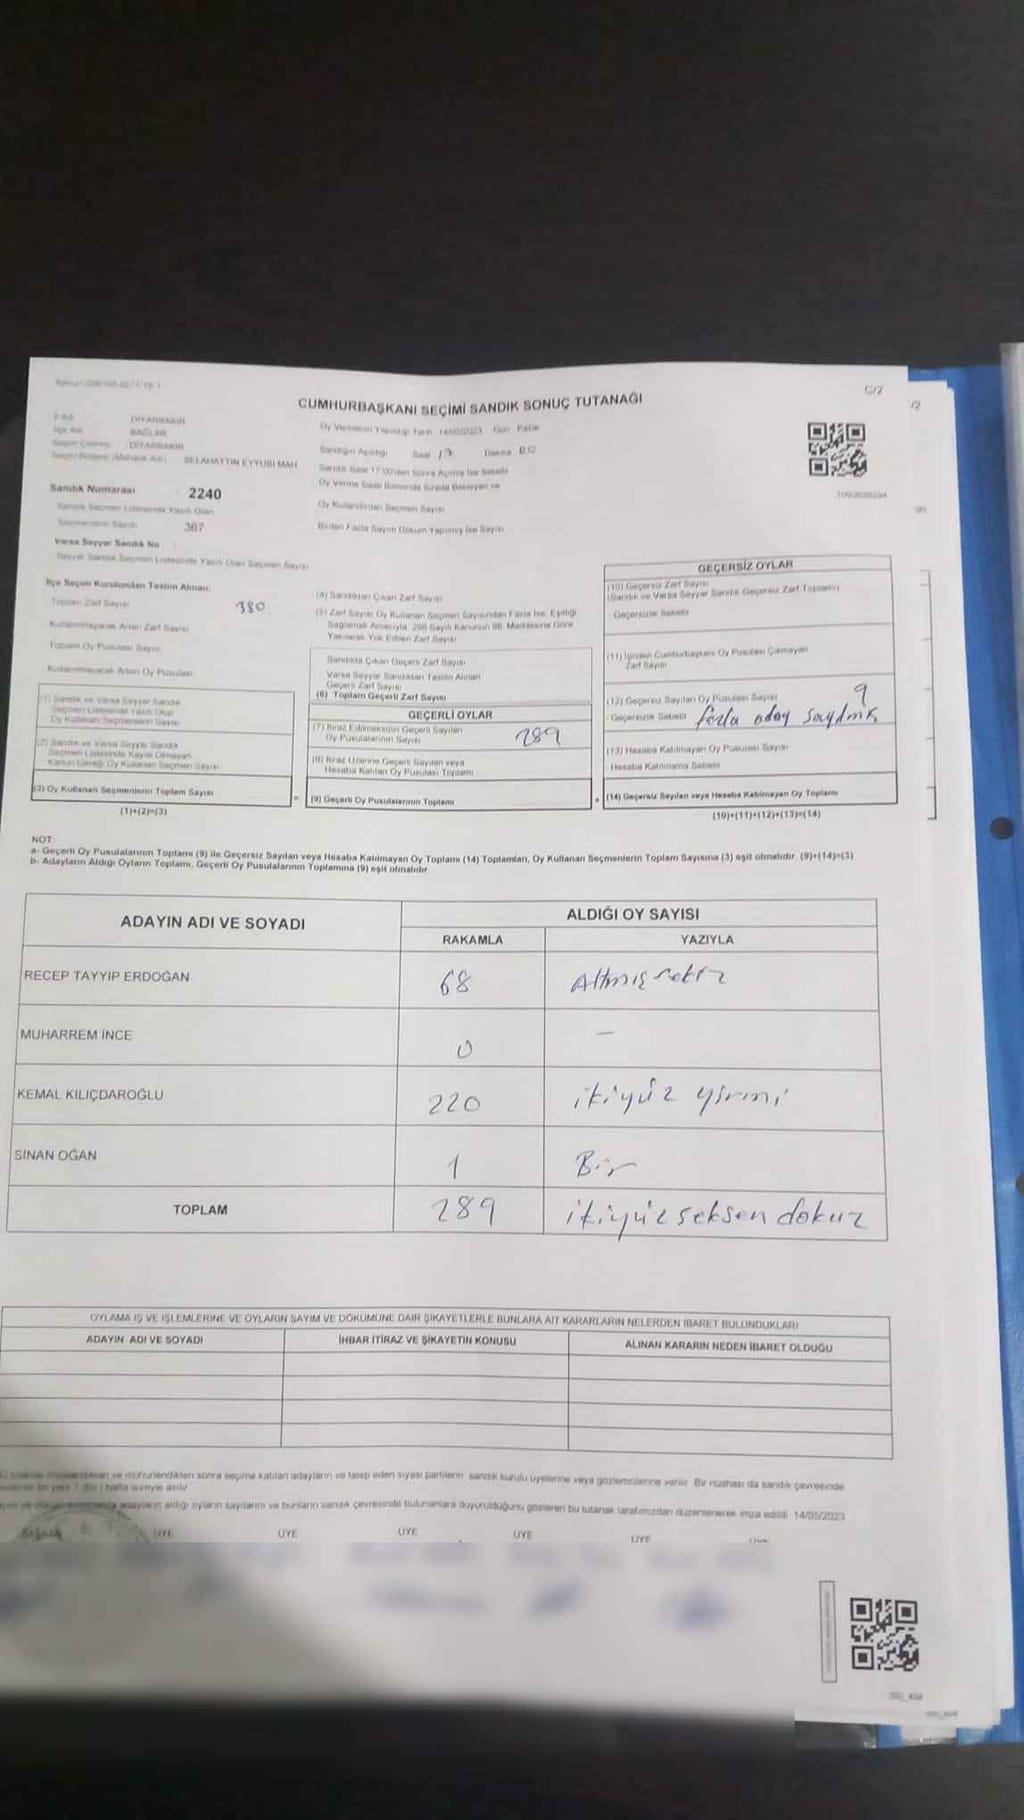 C/2
/2
CUMHURBAŞKANI SEÇİMİ SANDIK SONUÇ TUTANAĞI
İl Adı DİYARBAKIR
İlçe Adı BAĞLAR
Seçim Çevresi DİYARBAKIR
Seçim Bölgesi (Mahalle Adı) SELAHATTİN EYYUBİ MAH
Sandık Numarası 2240
Sandık Seçmen Listesinde Yazılı Olan
Seçmenlerin Sayısı 367
Varsa Seyyar Sandık No
Seyyar Sandık Seçmen Listesinde Yazılı Olan Seçmen Sayısı
Oy Vermenin Yapıldığı Tarih 14/05/2023 Gün Pazar
Sandığın Açıldığı Saat 17 Dakika 00
Sandık Saat 17:00'den Sonra Açılmış İse Sebebi
Oy Verme Saati Bitiminde Sırada Bekleyen ve
Oy Kullandırılan Seçmen Sayısı
Birden Fazla Sayım Döküm Yapılmış İse Sayısı
İlçe Seçim Kurulundan Teslim Alınan:
Toplam Zarf Sayısı 380
Kullanılmayarak Artan Zarf Sayısı
Toplam Oy Pusulası Sayısı
Kullanılmayarak Artan Oy Pusulası
(1) Sandık ve Varsa Seyyar Sandık
Seçmen Listesinde Yazılı Olup
Oy Kullanan Seçmenlerin Sayısı
(2) Sandık ve Varsa Seyyar Sandık
Seçmen Listesinde Kayıtlı Olmayan
Kanun Gereği Oy Kullanan Seçmen Sayısı
(3) Oy Kullanan Seçmenlerin Toplam Sayısı
(1)+(2)=(3)
(4) Sandıktan Çıkan Zarf Sayısı
(5) Zarf Sayısı Oy Kullanan Seçmen Sayısından Fazla İse, Eşitliği
Sağlamak Amacıyla, 298 Sayılı Kanunun 98. Maddesine Göre
Yakılarak Yok Edilen Zarf Sayısı
Sandıkta Çıkan Geçerli Zarf Sayısı
Varsa Seyyar Sandıktan Teslim Alınan
Geçerli Zarf Sayısı
(6) Toplam Geçerli Zarf Sayısı
GEÇERLİ OYLAR
(7) İtiraz Edilmeksizin Geçerli Sayılan
Oy Pusulalarının Sayısı 289
(8) İtiraz Üzerine Geçerli Sayılan veya
Hesaba Katılan Oy Pusulası Toplamı
= (9) Geçerli Oy Pusulalarının Toplamı
GEÇERSİZ OYLAR
(10) Geçersiz Zarf Sayısı
(Sandık ve Varsa Seyyar Sandık Geçersiz Zarf Toplamı)
Geçersizlik Sebebi
(11) İçinden Cumhurbaşkanı Oy Pusulası Çıkmayan
Zarf Sayısı
(12) Geçersiz Sayılan Oy Pusulası Sayısı 9
Geçersizlik Sebebi fazla aday
(13) Hesaba Katılmayan Oy Pusulası Sayısı
Hesaba Katılmama Sebebi
+ (14) Geçersiz Sayılan veya Hesaba Katılmayan Oy Toplamı
(10)+(11)+(12)+(13)=(14)
NOT:
a- Geçerli Oy Pusulalarının Toplamı (9) ile Geçersiz Sayılan veya Hesaba Katılmayan Oy Toplamı (14) Toplamları, Oy Kullanan Seçmenlerin Toplam Sayısına (3) eşit olmalıdır. (9)+(14)=(3)
b- Adayların Aldığı Oyların Toplamı, Geçerli Oy Pusulalarının Toplamına (9) eşit olmalıdır.
ADAYIN ADI VE SOYADI ALDIĞI OY SAYISI
RAKAMLA YAZIYLA
RECEP TAYYIP ERDOĞAN 68 Altmış sekiz
MUHARREM İNCE 0 —
KEMAL KILIÇDAROĞLU 220 ikiyüz yirmi
SİNAN OĞAN 1 Bir
TOPLAM 289 ikiyüz seksen dokuz
OYLAMA İŞ VE İŞLEMLERİNE VE OYLARIN SAYIM VE DÖKÜMÜNE DAİR ŞİKAYETLERLE BUNLARA AİT KARARLARIN NELERDEN İBARET BULUNDUKLARI
ADAYIN ADI VE SOYADI İHBAR İTİRAZ VE ŞİKAYETİN KONUSU ALINAN KARARIN NEDEN İBARET OLDUĞU
ve mühürlendikten sonra seçime katılan adayların ve talep eden siyasi partilerin sandık kurulu üyelerine veya gözlemcilerine verilir. Bir nüshası da sandık çevresinde
hafta süreyle asılır
adayların aldığı oyların sayılarını ve bunların sandık çevresinde bulunanlara duyurulduğunu gösteren bu tutanak tarafımızdan düzenlenerek imza edildi. 14/05/2023
BAŞKAN ÜYE ÜYE ÜYE ÜYE ÜYE